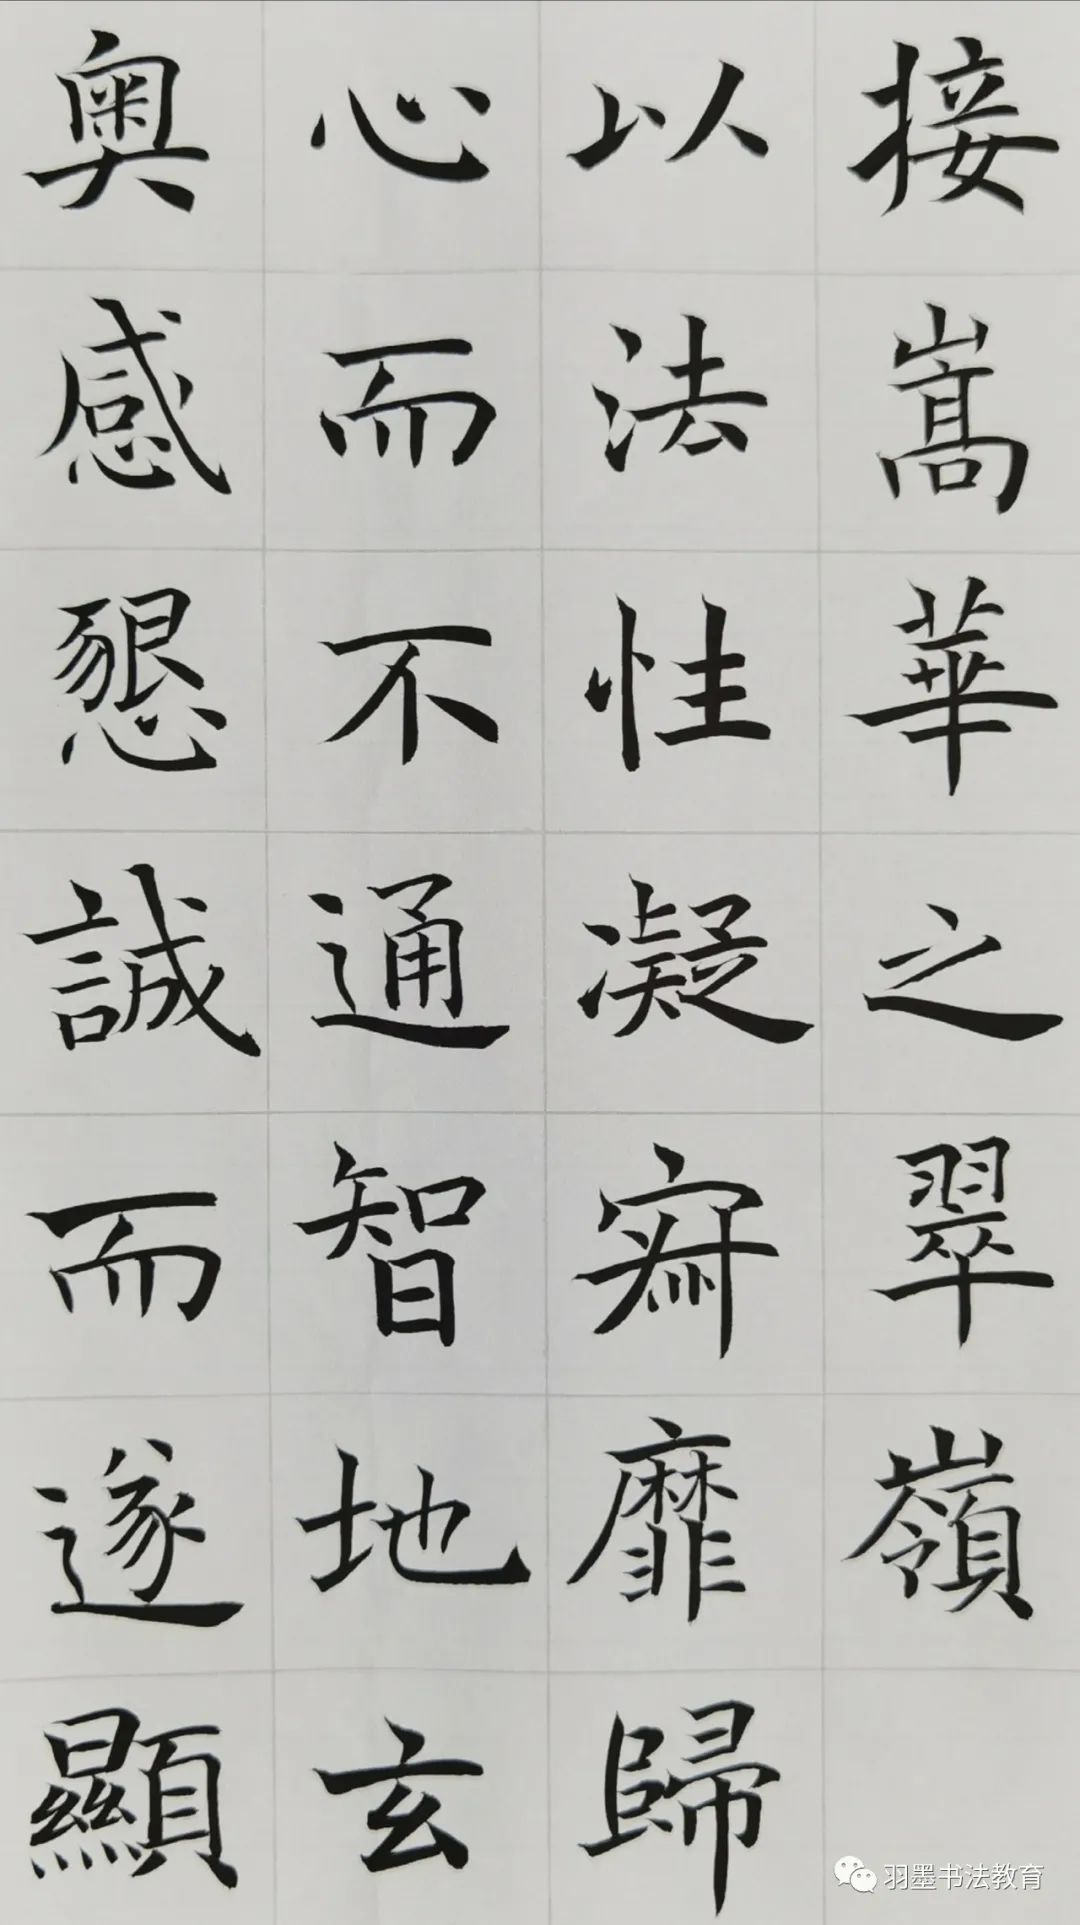 接嵩華之翠嶺
以法性凝寂靡歸
心而不通智地玄
奧感懇誠而遂顯
羽墨书法教育